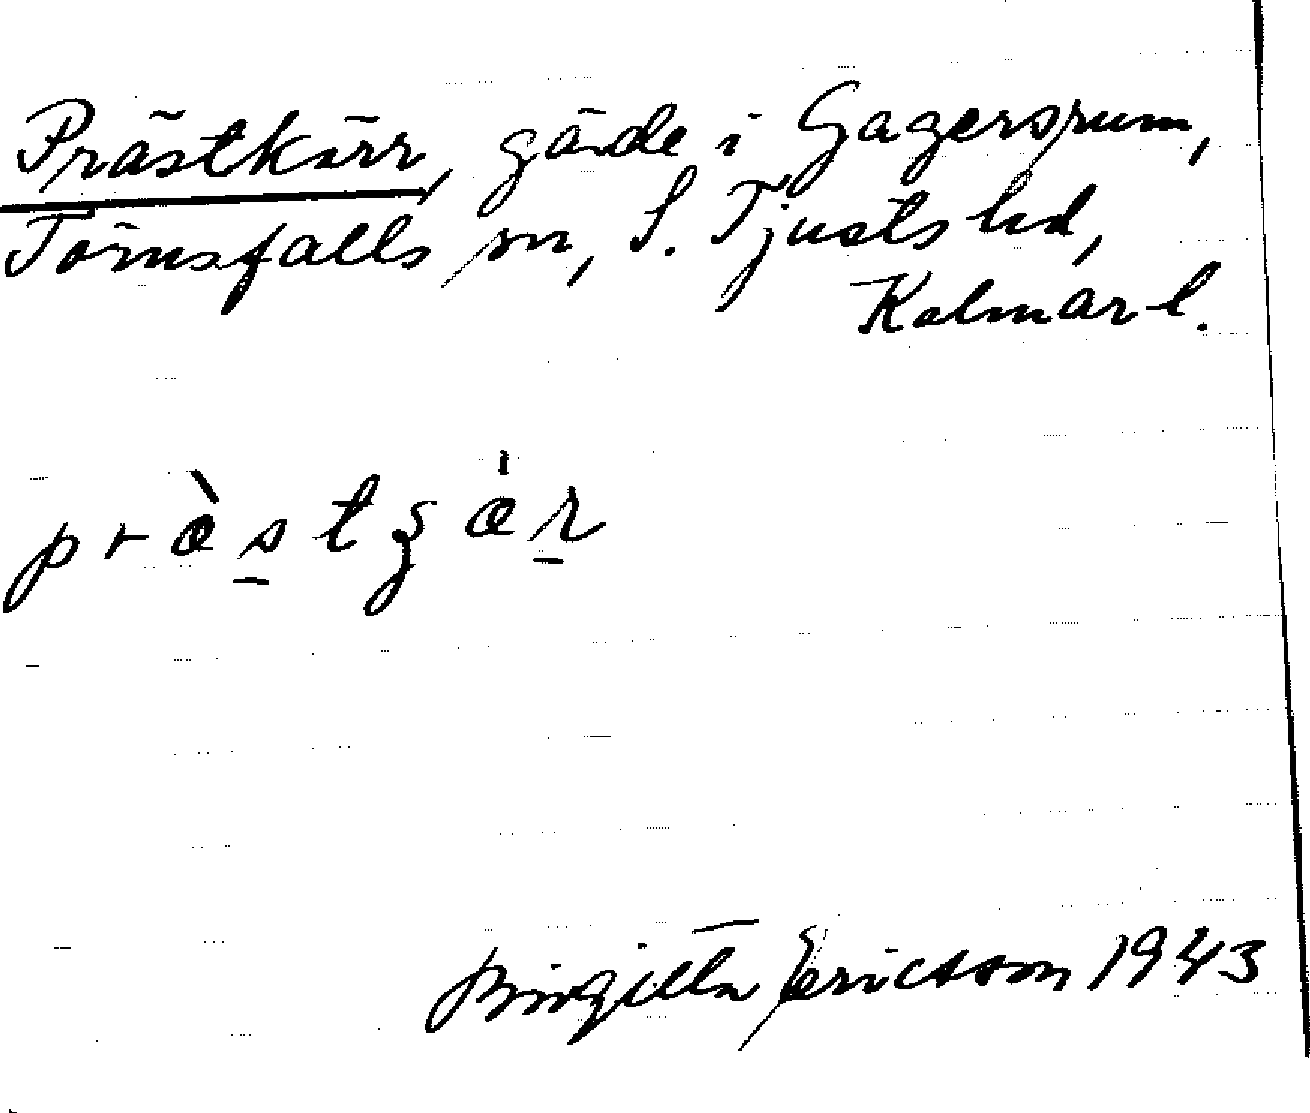 Prästkärr, gärde i Gagersrum,
Törnsfalls sn, S. Tjusts hd,
Kalmar l.
præ̀stʒæ̍r
Birgitta Ericsson 1943